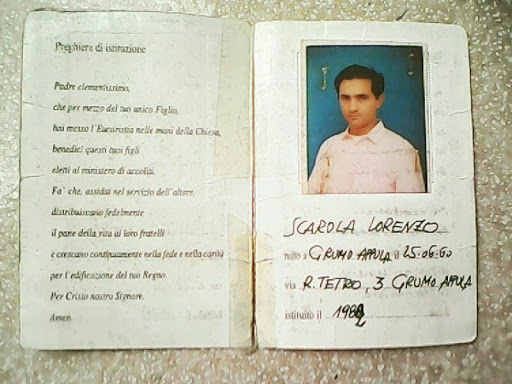 Preghiera di istituzione
Padre clementissimo,
che per mezzo del tuo unico Figlio,
hai messo l'Eucaristia nelle mani della Chiesa,
benedici questi tuoi figli
eletti al ministero di accoliti.
Fa' che, assidui nel servizio dell'altare,
distribuiscano fedelmente
il pane della vita ai loro fratelli
e crescano continuamente nella fede e nella carità
per l'edificazione del tuo Regno.
Per Cristo nostro Signore.
Amen.
SCAROLA LORENZO
nato a GRUMO APPULA il 25.06.60
via R. TETRO, 3 GRUMO APPULA
istituito il